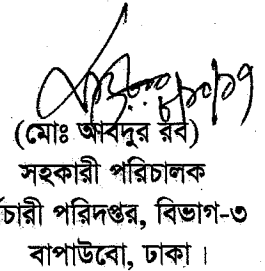 ৮/১০/১৭
(মোঃ আবদুর রব)
সহকারী পরিচালক
র্চারী পরিদপ্তর, বিভাগ-৩
বাপাউবো, ঢাকা।